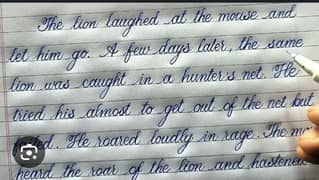 The lion laughed at the mouse and
let him go. A few days later, the same
lion was caught in a hunter's net. He
tried his almost to get out of the net but
. He roared loudly in rage. The
heard the roar of the lion and hastened